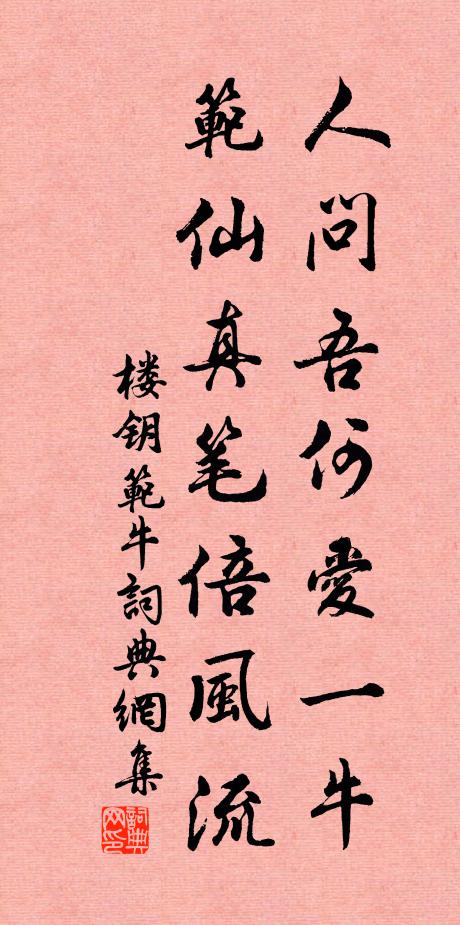 人問吾何愛一牛
範仙真笔倍風流
楼钥範牛詞典網集
詞典网印